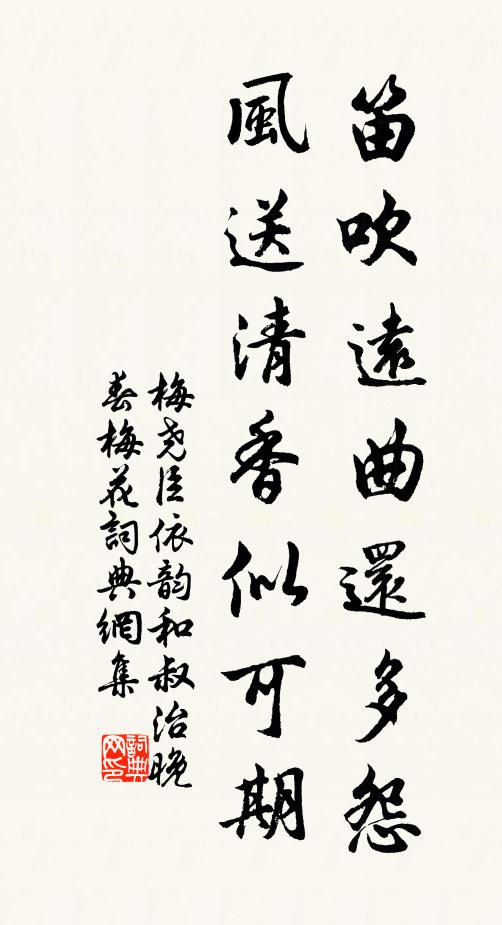 笛吹遠曲還多怨
風送清香似可期
梅堯臣依韵和叔治晚
春梅花詞典網集
詞典网印